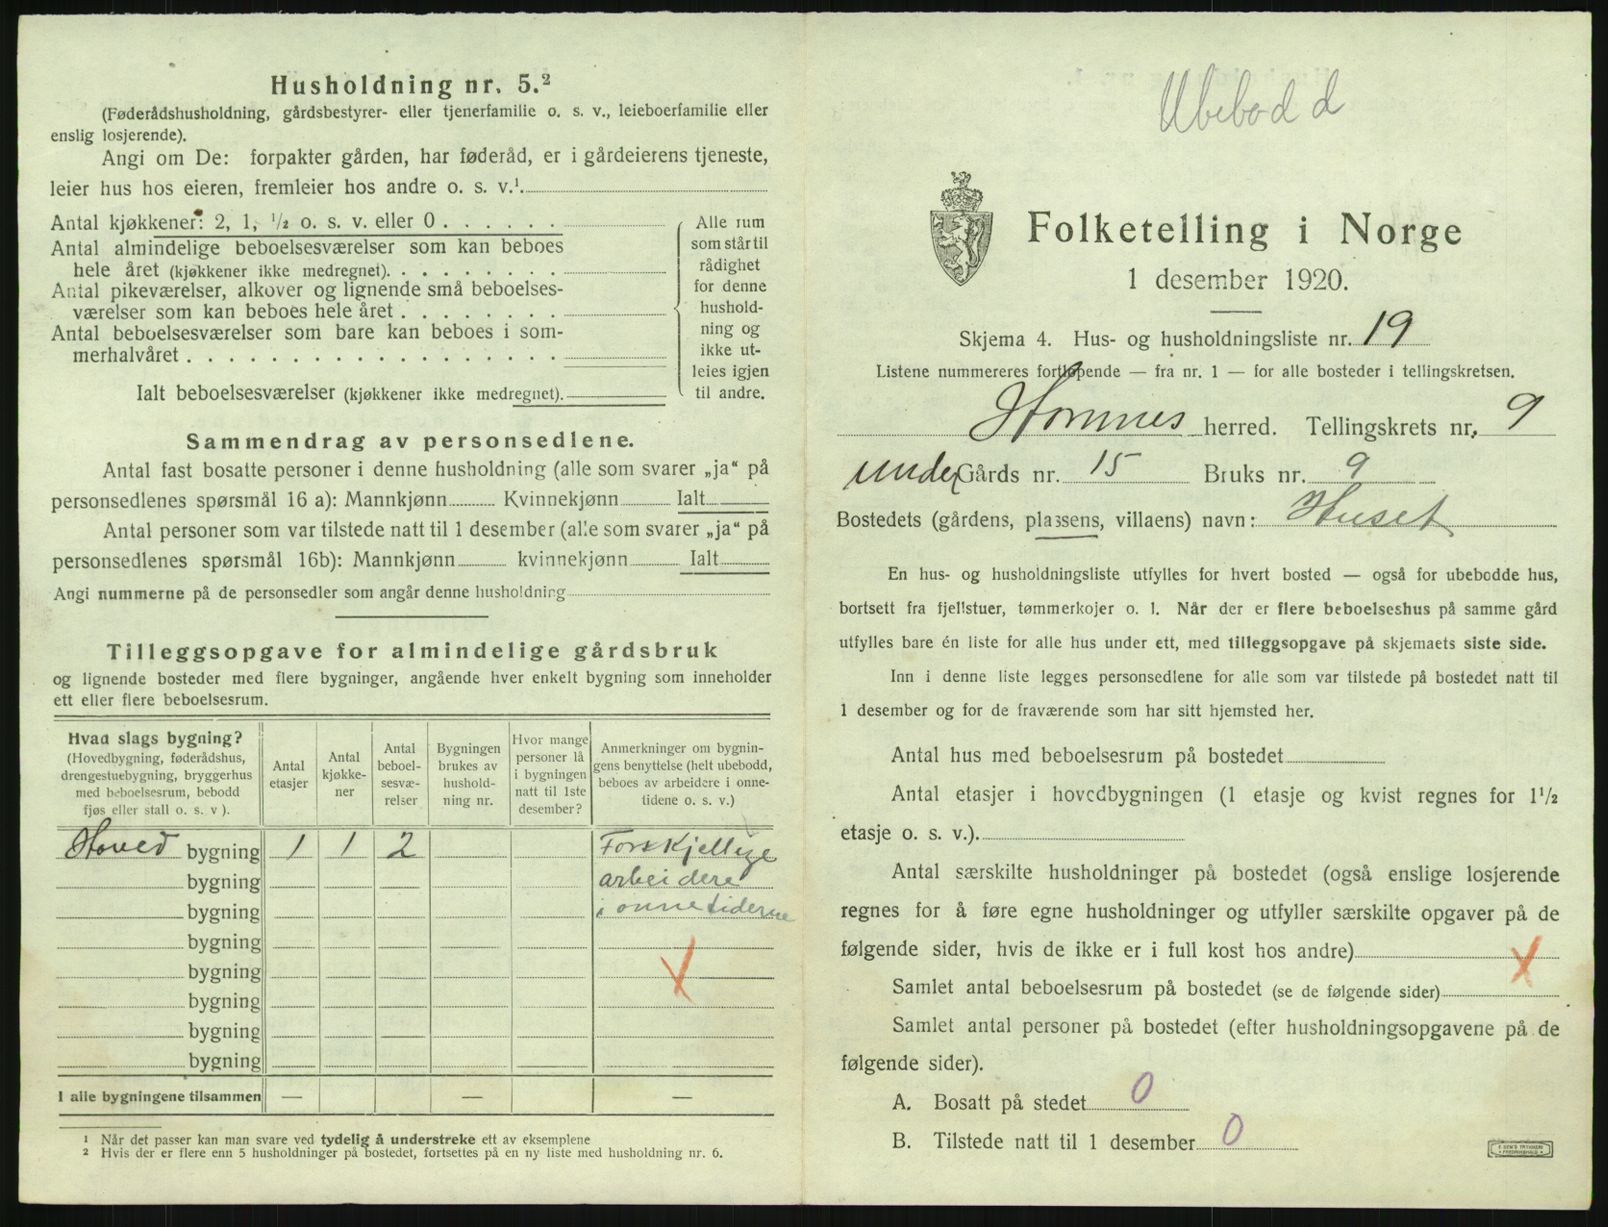 Husholdning nr. 5.²
(Føderådshusholdning, gårdsbestyrer- eller tjenerfamilie o. s. v., leieboerfamilie eller
enslig losjerende).
Angi om De: forpakter gården, har føderåd, er i gårdeierens tjeneste,
leier hus hos eieren, fremleier hos andre o. s. v.¹.
Antal kjøkkener: 2, 1, ½ o. s. v. eller 0 . . . . . .
Antal almindelige beboelsesværelser som kan beboes
hele året (kjøkkener ikke medregnet). . . . . . . . .
Antal pikeværelser, alkover og lignende små beboelses-
værelser som kan beboes hele året . . . . . . . .
Antal beboelsesværelser som bare kan beboes i som-
merhalvåret . . . . . . . . . . . . . . . . . .
Ialt beboelsesværelser (kjøkkener ikke medregnet).
Alle rum
som står til
rådighet
for denne
hushold-
ning og
ikke ut-
leies igjen
til andre.
Sammendrag av personsedlene.
Antal fast bosatte personer i denne husholdning (alle som svarer „ja“ på
personsedlenes spørsmål 16 a): Mannkjønn Kvinnekjønn Ialt
Antal personer som var tilstede natt til 1 desember (alle som svarer „ja“ på
personsedlenes spørsmål 16b): Mannkjønn kvinnekjønn Ialt
Angi nummerne på de personsedler som angår denne husholdning
Tilleggsopgave for almindelige gårdsbruk
og lignende bosteder med flere bygninger, angående hver enkelt bygning som inneholder
ett eller flere beboelsesrum.
Hvad slags bygning?
(Hovedbygning, føderådshus,
drengestuebygning, bryggerhus
med beboelsesrum, bebodd
fjøs eller stall o. s. v ).
Antal
etasjer
Antal
kjøkke-
ner
Antal
beboel-
sesvæ-
relser
Bygningen
brukes av
hushold-
ning nr.
Hvor mange
personer lå
i bygningen
natt til 1ste
desember?
Anmerkninger om bygnin-
gens benyttelse (helt ubebodd,
beboes av arbeidere i onne-
tidene o. s. v.)
Hoved bygning 1 1 2 Forskjellige
bygning arbeidere
bygning i onnetiderne
bygning
bygning
bygning
bygning
bygning
I alle bygningene tilsammen — — —
¹ Når det passer kan man svare ved tydelig å understreke ett av eksemplene
² Hvis der er flere enn 5 husholdninger på bostedet, fortsettes på en ny liste med husholdning nr. 6.
Ubebodd
Folketelling i Norge
1 desember 1920.
Skjema 4. Hus- og husholdningsliste nr. 19
Listene nummereres fortløpende — fra nr. 1 — for alle bosteder i tellingskretsen.
Hornnes herred. Tellingskrets nr. 9
under Gårds nr. 15 Bruks nr. 9
Bostedets (gårdens, plassens, villaens) navn: Huset
En hus- og husholdningsliste utfylles for hvert bosted — også for ubebodde hus,
bortsett fra fjellstuer, tømmerkojer o. l. Når der er flere beboelseshus på samme gård
utfylles bare én liste for alle hus under ett, med tilleggsopgave på skjemaets siste side.
Inn i denne liste legges personsedlene for alle som var tilstede på bostedet natt til
1 desember og for de fraværende som har sitt hjemsted her.
Antal hus med beboelsesrum på bostedet
Antal etasjer i hovedbygningen (1 etasje og kvist regnes for 1½
etasje o. s. v.).
Antal særskilte husholdninger på bostedet (også enslige losjerende
regnes for å føre egne husholdninger og utfyller særskilte opgaver på de
følgende sider, hvis de ikke er i full kost hos andre)
Samlet antal beboelsesrum på bostedet (se de følgende sider)
Samlet antal personer på bostedet (efter husholdningsopgavene på de
følgende sider).
A. Bosatt på stedet 0
B. Tilstede natt til 1 desember 0